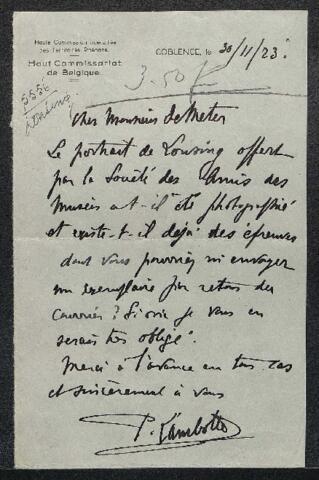 Haute Commission Interalliée
des Territoires Rhénans
Haut Commissariat
de Belgique.
COBLENCE, le 30/11/23.
5556
3.50
Cher Monsieur De Meter
Le portrait de Lousing offert
par la Société des Amis des
Musées a-t-il été photographié
et existe-t-il déjà des épreuves
dont vous pourriez m'envoyer
un exemplaire par retour du
courrier? Si oui je vous en
serais très obligé.
Merci à l'avance en tous cas
et sincèrement à vous
P. Lambotte